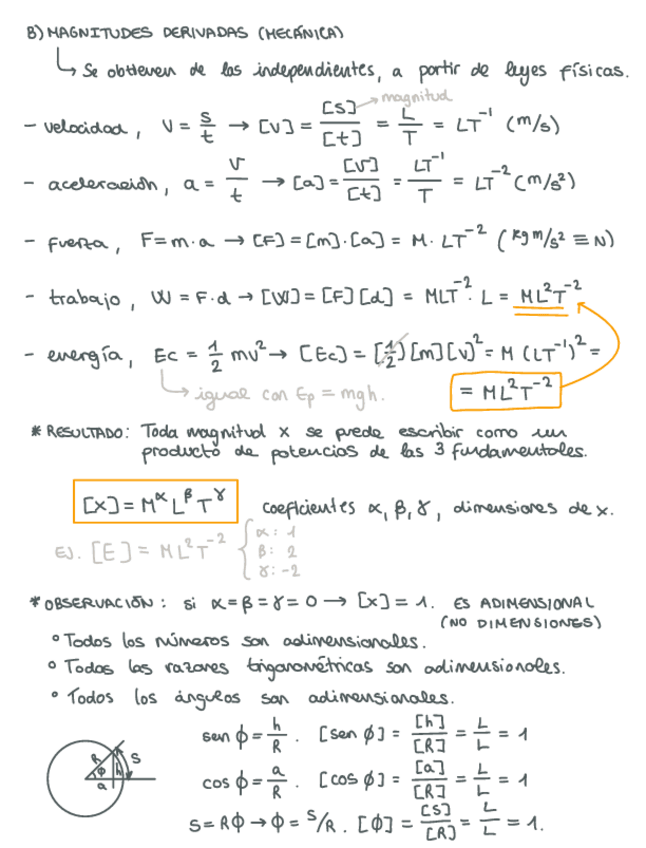 B) MAGNITUDES DERIVADAS (MECÁNICA)
↳ Se obtienen de las independientes, a partir de leyes físicas.
- velocidad, V = s/t → [V] = [s]/[t] = L/T = LT⁻¹ (m/s)
→ magnitud
- aceleración, a = v/t → [a] = [v]/[t] = LT⁻¹/T = LT⁻² (m/s²)
- fuerza, F = m·a → [F] = [m]·[a] = M·LT⁻² (kg m/s² ≡ N)
- trabajo, W = F·d → [W] = [F][d] = MLT⁻²·L = ML²T⁻²
- energía, Ec = 1/2 mv² → [Ec] = [1/2][m][v]² = M(LT⁻¹)² =
↳ igual con Ep = mgh.
= ML²T⁻²
* RESULTADO: Toda magnitud x se puede escribir como un
producto de potencias de las 3 fundamentales.
[x] = M^α L^β T^γ coeficientes α, β, γ, dimensiones de x.
EJ. [E] = ML²T⁻² { α: 1
β: 2
γ: -2
* OBSERVACIÓN: si α = β = γ = 0 → [x] = 1. ES ADIMENSIONAL
(NO DIMENSIONES)
° Todos los números son adimensionales.
° Todos las razones trigonométricas son adimensionales.
° Todos los ángulos son adimensionales.
R ϕ h S a
sen ϕ = h/R. [sen ϕ] = [h]/[R] = L/L = 1
cos ϕ = a/R. [cos ϕ] = [a]/[R] = L/L = 1
S = Rϕ → ϕ = S/R. [ϕ] = [S]/[R] = L/L = 1.